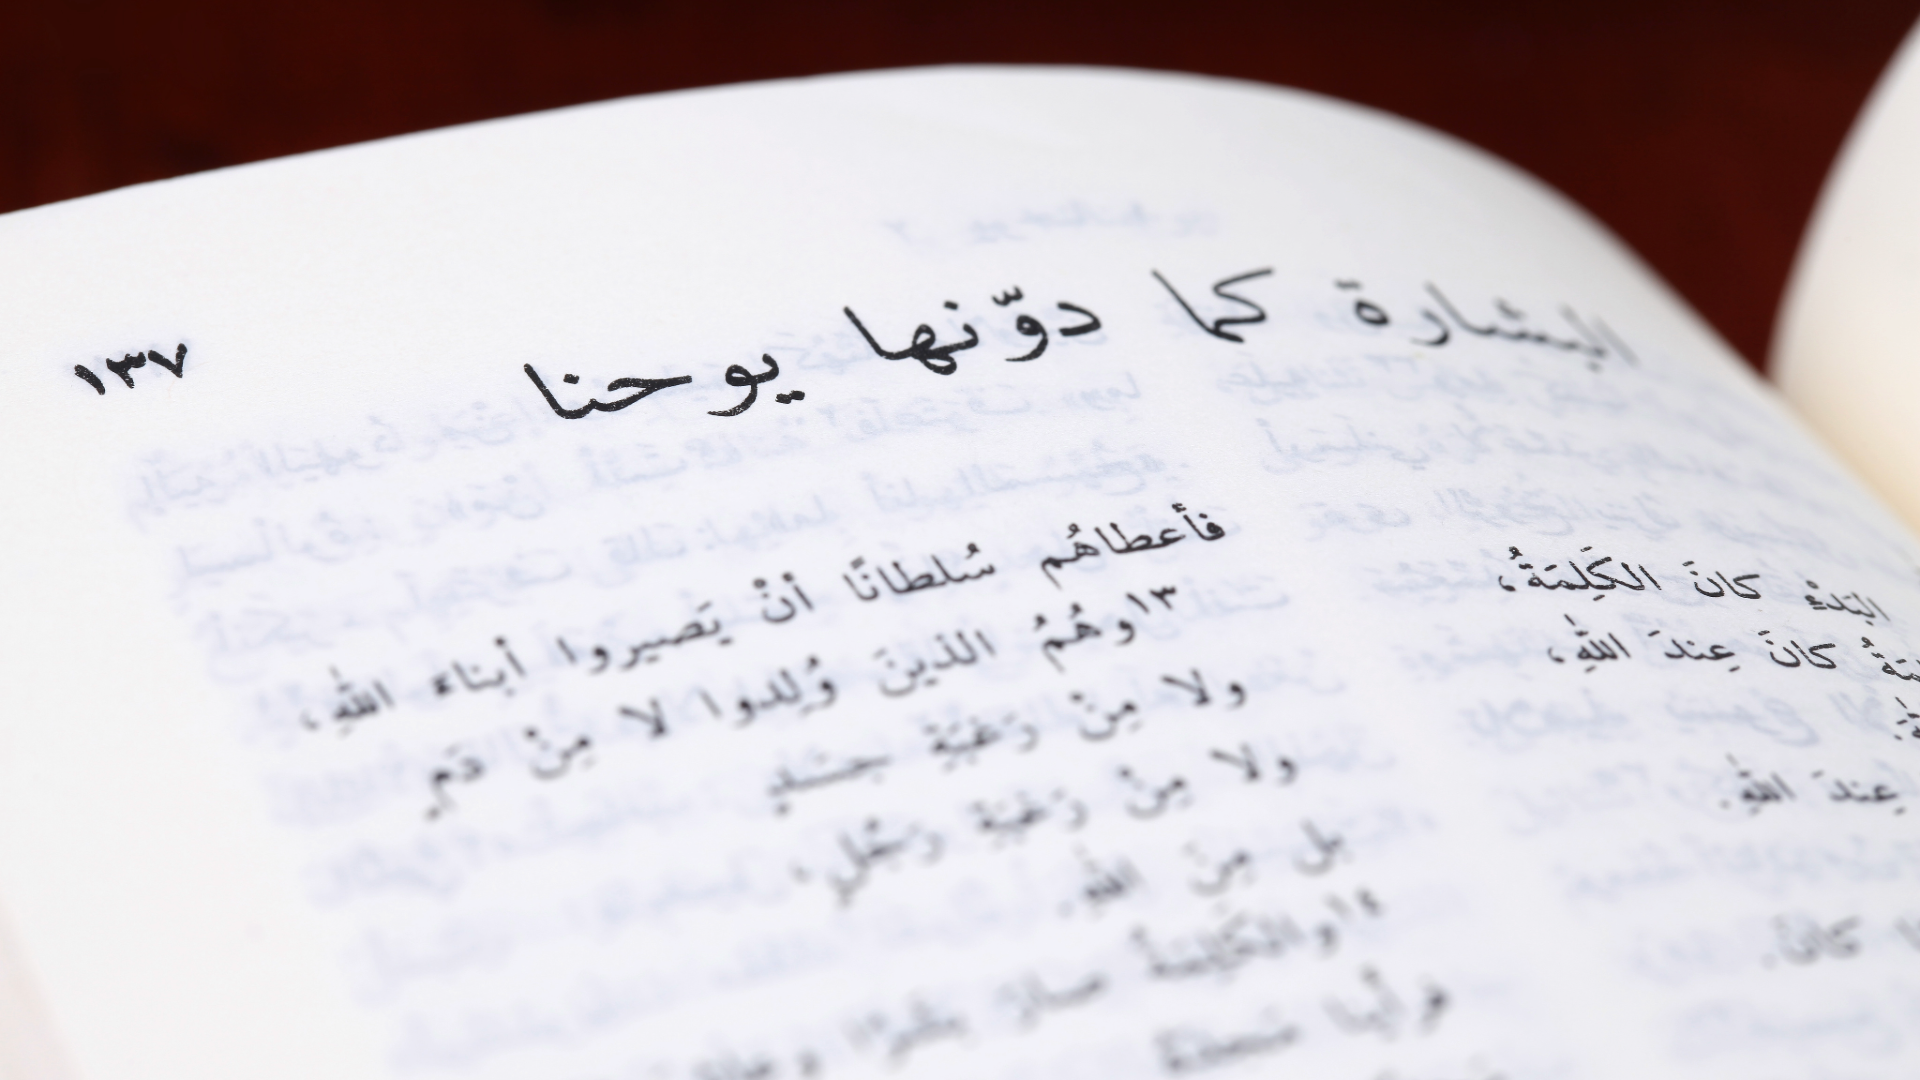 البشارة كما دوّنها يوحنا
١٣٧
البَدءِ كانَ الكَلِمَةُ،
كانَ عِندَ اللهِ،
عِندَ اللهِ.
كانَ.
فأعطاهُم سُلطانًا أنْ يَصيروا أبناءَ اللهِ،
١٣وهُمُ الذينَ وُلِدوا لا مِنْ دَمٍ
ولا مِنْ رَغبَةِ جسَدٍ
ولا مِنْ رَغبَةِ رَجُلٍ،
بل مِنَ اللهِ.
١٤والكَلِمَةُ صارَ بشَرًا